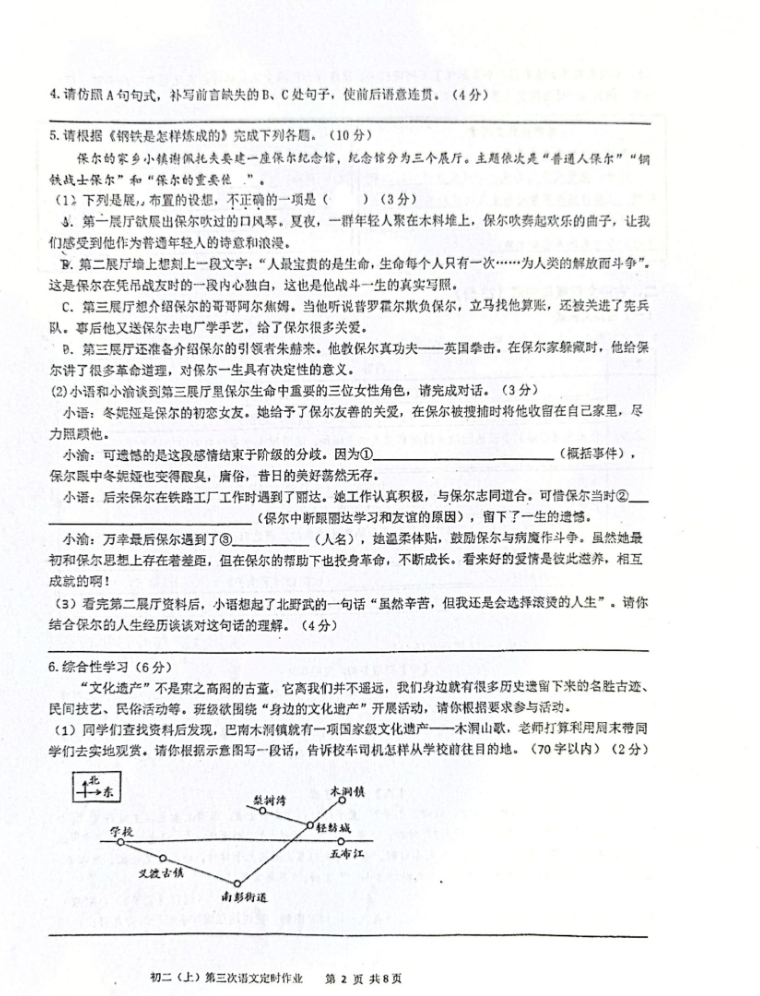 4.请仿照A句句式，补写前言缺失的B、C处句子，使前后语意连贯。（4分）
5.请根据《钢铁是怎样炼成的》完成下列各题。（10分）
保尔的家乡小镇谢佩托夫要建一座保尔纪念馆，纪念馆分为三个展厅。主题依次是“普通人保尔”“钢
铁战士保尔”和“保尔的重要他 ”。
（1）下列是展 布置的设想，不正确的一项是（ ）（3分）
A. 第一展厅欲展出保尔吹过的口风琴。夏夜，一群年轻人聚在木料堆上，保尔吹奏起欢乐的曲子，让我
们感受到他作为普通年轻人的诗意和浪漫。
B. 第二展厅墙上想刻上一段文字：“人最宝贵的是生命，生命每个人只有一次……为人类的解放而斗争”。
这是保尔在凭吊战友时的一段内心独白，这也是他战斗一生的真实写照。
C. 第三展厅想介绍保尔的哥哥阿尔焦姆。当他听说普罗霍尔欺负保尔，立马找他算账，还被关进了宪兵
队。事后他又送保尔去电厂学手艺，给了保尔很多关爱。
D. 第三展厅还准备介绍保尔的引领者朱赫来。他教保尔真功夫——英国拳击。在保尔家躲藏时，他给保
尔讲了很多革命道理，对保尔一生具有决定性的意义。
(2)小语和小渝谈到第三展厅里保尔生命中重要的三位女性角色，请完成对话。（3分）
小语：冬妮娅是保尔的初恋女友。她给予了保尔友善的关爱，在保尔被搜捕时将他收留在自己家里，尽
力照顾他。
小渝：可遗憾的是这段感情结束于阶级的分歧。因为①____________（概括事件），
保尔眼中冬妮娅也变得酸臭，庸俗，昔日的美好荡然无存。
小语：后来保尔在铁路工厂工作时遇到了丽达。她工作认真积极，与保尔志同道合。可惜保尔当时②__
____________（保尔中断跟丽达学习和友谊的原因），留下了一生的遗憾。
小渝：万幸最后保尔遇到了③________（人名），她温柔体贴，鼓励保尔与病魔作斗争。虽然她最
初和保尔思想上存在着差距，但在保尔的帮助下也投身革命，不断成长。看来好的爱情是彼此滋养，相互
成就的啊！
（3）看完第二展厅资料后，小语想起了北野武的一句话“虽然辛苦，但我还是会选择滚烫的人生”。请你
结合保尔的人生经历谈谈对这句话的理解。（4分）
6.综合性学习（6分）
“文化遗产”不是束之高阁的古董，它离我们并不遥远，我们身边就有很多历史遗留下来的名胜古迹、
民间技艺、民俗活动等。班级欲围绕“身边的文化遗产”开展活动，请你根据要求参与活动。
（1）同学们查找资料后发现，巴南木洞镇就有一项国家级文化遗产——木洞山歌，老师打算利用周末带同
学们去实地观赏。请你根据示意图写一段话，告诉校车司机怎样从学校前往目的地。（70字以内）（2分）
北
东
木洞镇
梨树湾
轻纺城
学校
五布江
又渡古镇
南彭街道
初二（上）第三次语文定时作业 第 2 页 共8页